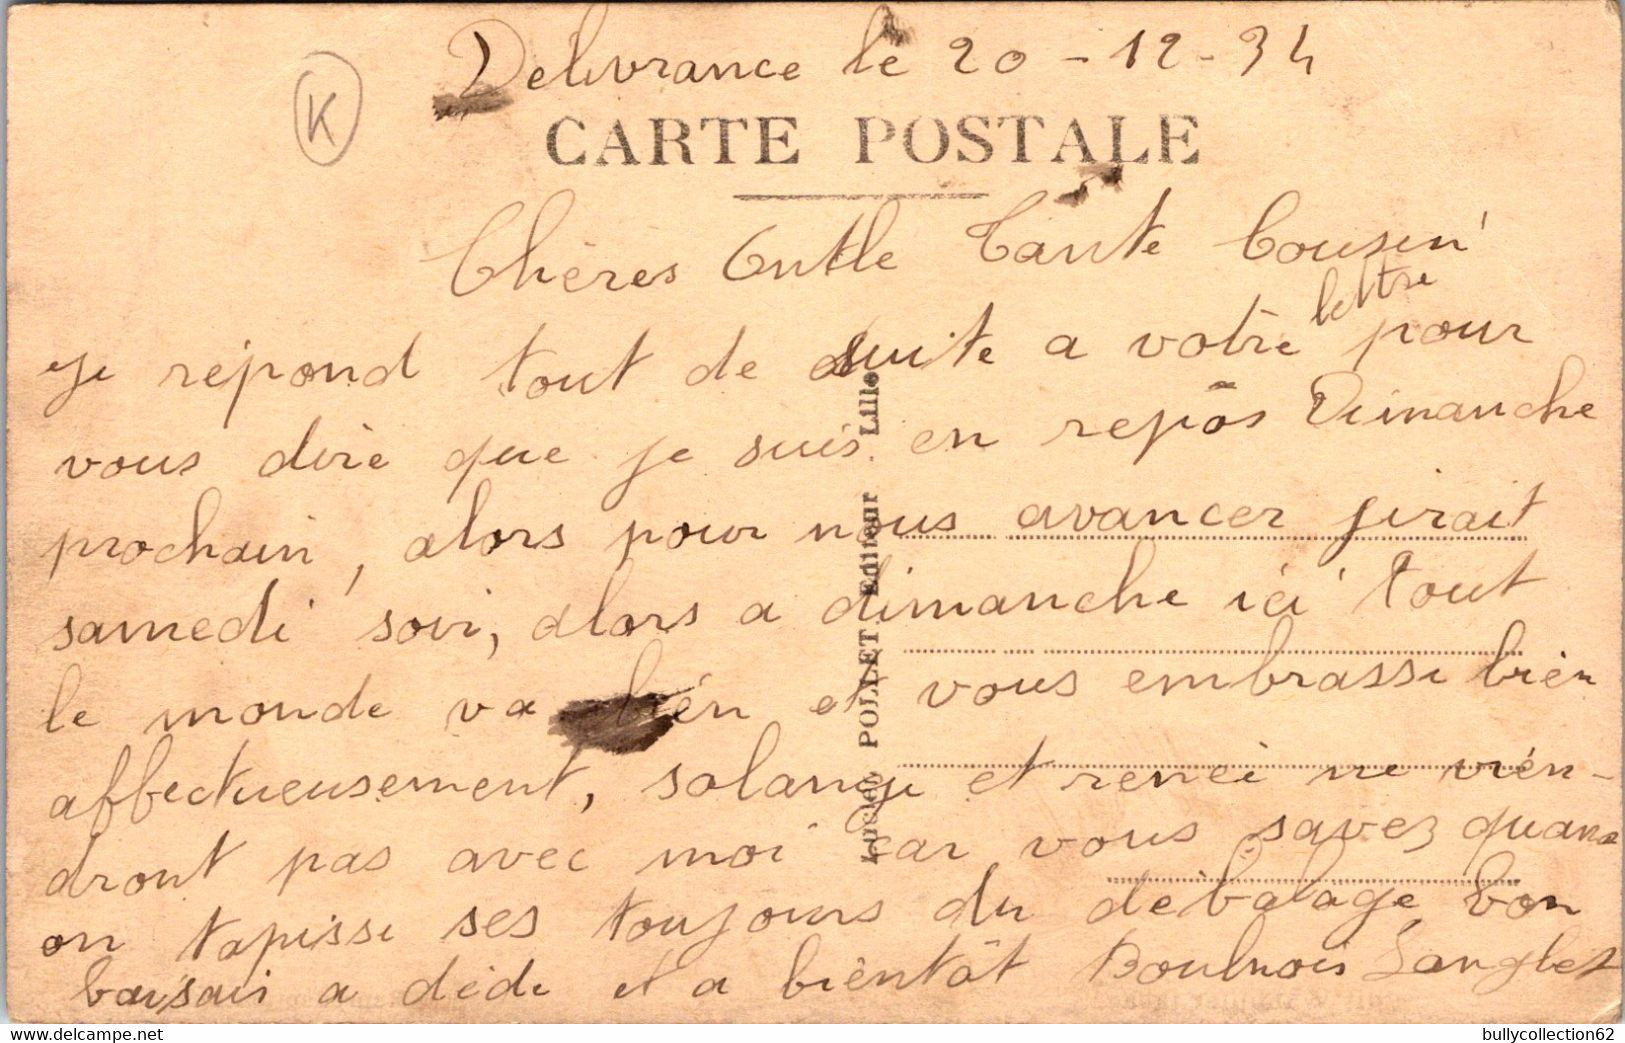 K
Délivrance le 20-12-34
CARTE POSTALE
Chères Oncle Tante Cousin
Je répond tout de suite a votre lettre pour
vous dire que je suis en repôs Dimanche
prochain, alors pour nous avancer jirait
samedi soir, alors a dimanche ici tout
le monde va bién et vous embrasse bién
affectueusement, solange et renei ne vién-
dront pas avec moi car vous savez quand
on tapisse ses toujours du debalage, bon
baisais a dédé et a bièntôt Boulnois Langlet
Lucien POLLET Editeur Lille
bullycollection62